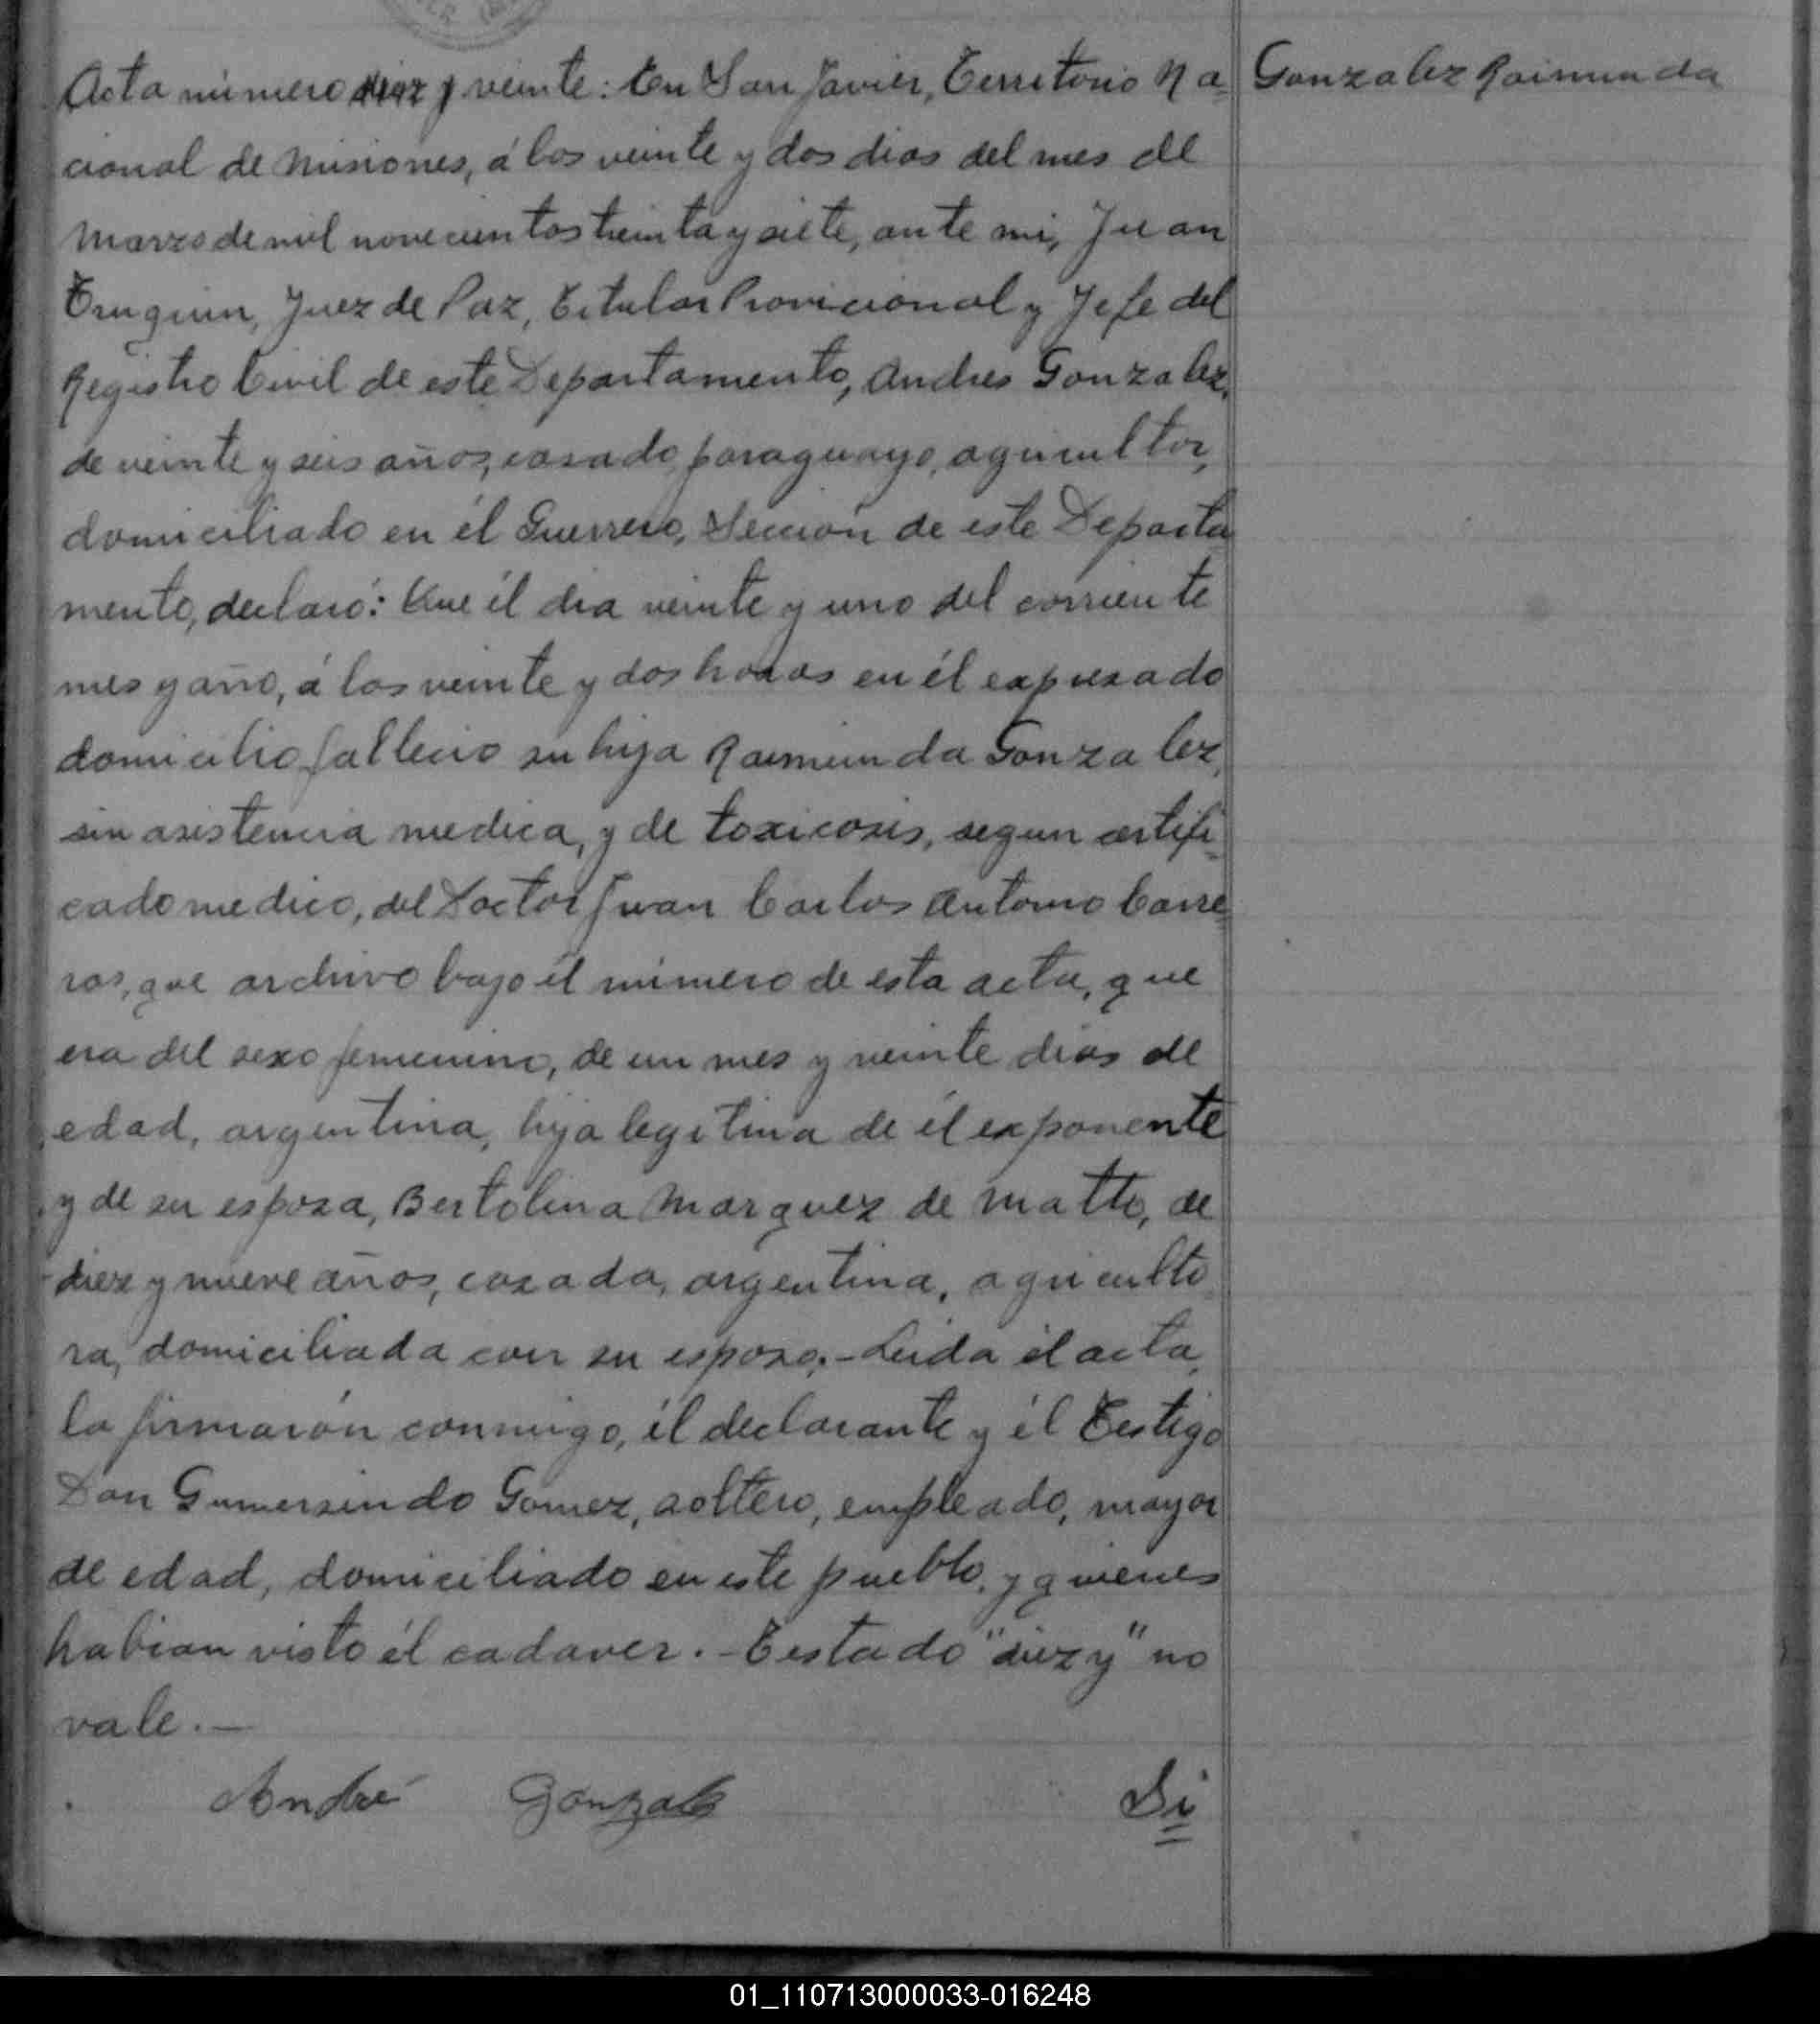 Acta número diez y veinte: En San Javier, Territorio Na-
Gonzalez Raimunda
cional de Misiones, á los veinte y dos dias del mes de
Marzo de mil novecientos treinta y siete, ante mi, Juan
Truquin, Juez de Paz, Titular Provicional y Jefe del
Registro Civil de este Departamento, Andres Gonzalez,
de veinte y seis años, casado, paraguayo, agricultor,
domiciliado en él Guerrero, Sección de este Departa
mento, declaró: Que él dia veinte y uno del corriente
mes y año, á las veinte y dos horas en él expresado
domicilio falleció su hija Raimunda Gonzalez,
sin asistencia medica, y de toxicosis, segun certifi-
cado medico, del Doctor Juan Carlos Antonio Carre-
ras, que archivo bajo él número de esta acta, que
era del sexo femenino, de un mes y veinte dias de
edad, argentina, hija legitima de él exponente
y de su esposa, Bertolina Marquez de Matto, de
diez y nueve años, casada, argentina, agriculto
ra, domiciliada con su esposo.- Leida él acta,
la firmarón conmigo, él declarante y él Testigo
Don Gumersindo Gomez, soltero, empleado, mayor
de edad, domiciliado en este pueblo, y quienes
habian visto él cadaver.- Testado "diez y" no
vale.—
André Gonzalez
01_110713000033-016248